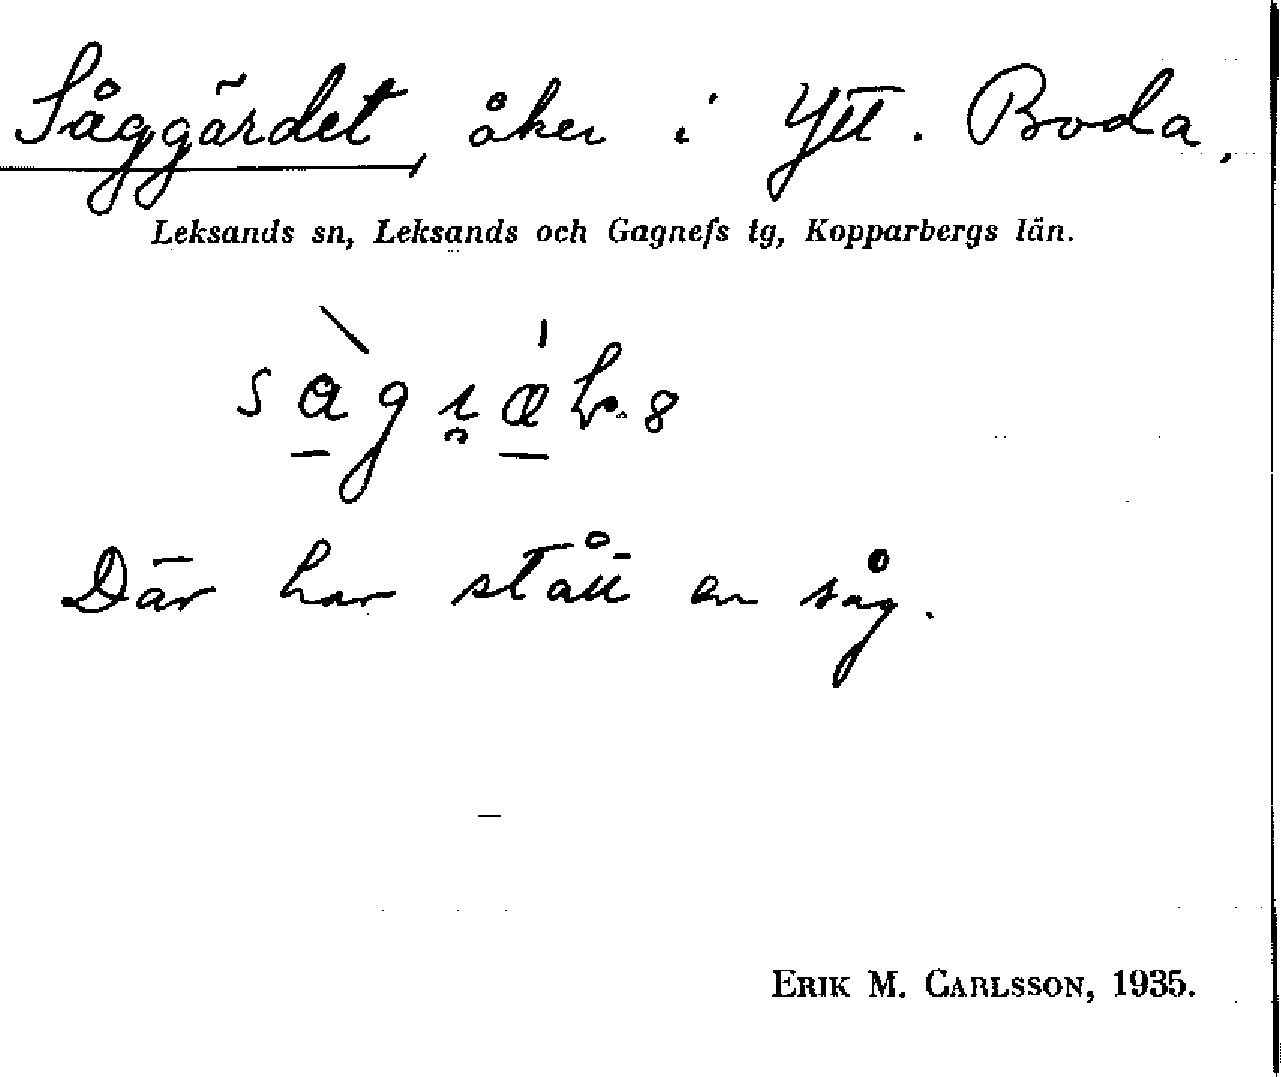 Såggärdet, åker i Ytt. Boda,
Leksands sn, Leksands och Gagnefs tg, Kopparbergs län.
Där har stått en såg.
ERIK M. CARLSSON, 1935.